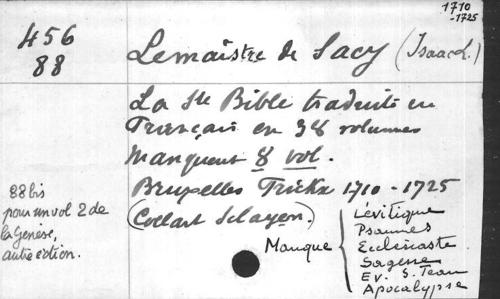 1710
-1725
456
88
Lemaistre de Sacy (Isaac L.)
La Ste Bible traduite en
Français en 38 volumes
Manquent 8 vol.
Bruxelles Frickx 1710 - 1725
(Collart Sclayen.)
88 bis
pour un vol 2 de
la Genèse,
autre édition.
Manque {
Lévitique
Psaumes
Ecclésiaste
Sagesse
Ev. S. Jean
Apocalypse